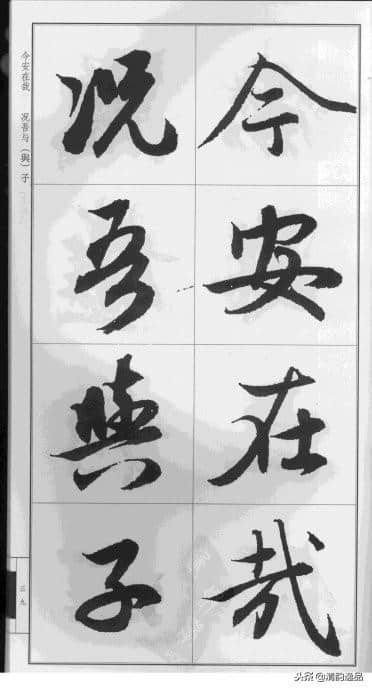 今安在哉
况吾與子
今安在哉 况吾与（與）子
三九
头条@清韵逸品